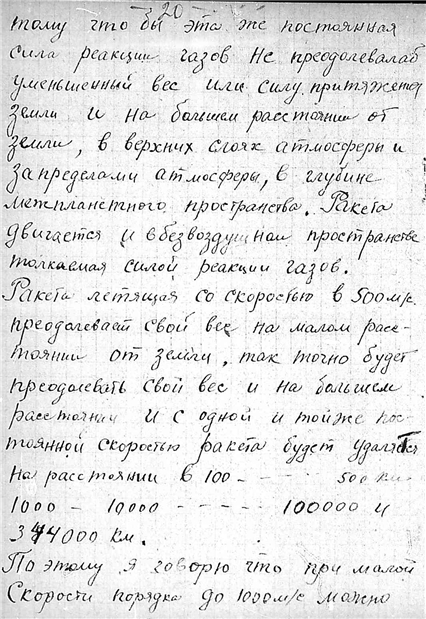 20
тому что бы эта же постоянная
сила реакции газов не преодолевалаб
уменьшенный вес или силу притяжения
земли и на большем расстоянии от
земли, в верхних слоях атмосферы и
за пределами атмосферы, в глубине
межпланетного пространства. Ракета
двигается и в безвоздушном пространстве
толкаемая силой реакции газов.
Ракета летящая со скоростью в 500 м/с.
преодолевает свой вес на малом расс-
тоянии от земли, так точно будет
преодолевать свой вес и на большем
расстоянии и с одной и той же пос-
тоянной скоростью ракета будет удалятся
на расстоянии в 100 - - - - - 500 км.
1000 - 10000 - - - - - 100000 и
344000 км.
По этому я говорю что при малой
скорости порядка до 1000 м/с можно